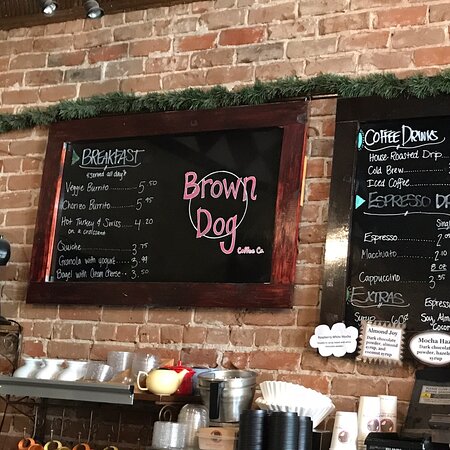 BREAKFAST
*served all day*
Veggie Burrito ........ 5.50
Chorizo Burrito ........ 5.95
Hot Turkey & Swiss ..... 4.20
on a croissant
Quiche ........ 3.75
Granola with yogurt ... 3.99
Bagel with Cream cheese .. 3.50
Brown
Dog
Coffee Co.
COFFEE DRINKS
House Roasted Drip
Cold Brew
Iced Coffee
ESPRESSO DR
Espresso
Macchiato
2.10
8 oz
Cappuccino
EXTRAS
Espresso
Syrup 60¢
Soy, Alm
Coconu
Raspberry White Mocha
Almond Joy
Dark chocolate
powder, almond
syrup, and
coconut syrup
Mocha Haz
Dark chocolate
powder, hazel
syrup